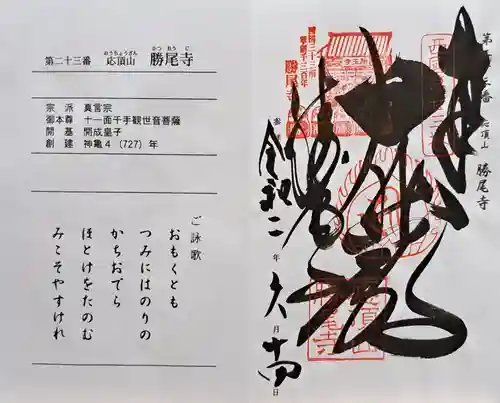 第二十三番 応頂山 勝尾寺
おうちょうざん かつおうじ
宗 派 真言宗
御本尊 十一面千手観世音菩薩
開 基 開成皇子
創 建 神亀4(727)年
ご詠歌
おもくとも
つみにはのりの
かちおでら
ほとけをたのむ
みこそやすけれ
第二十三番 応頂山 勝尾寺
西国三十三所
草創千三百年
勝尾寺
奉拝
大悲殿
令和二年
六月
十四日
応頂山
勝尾寺